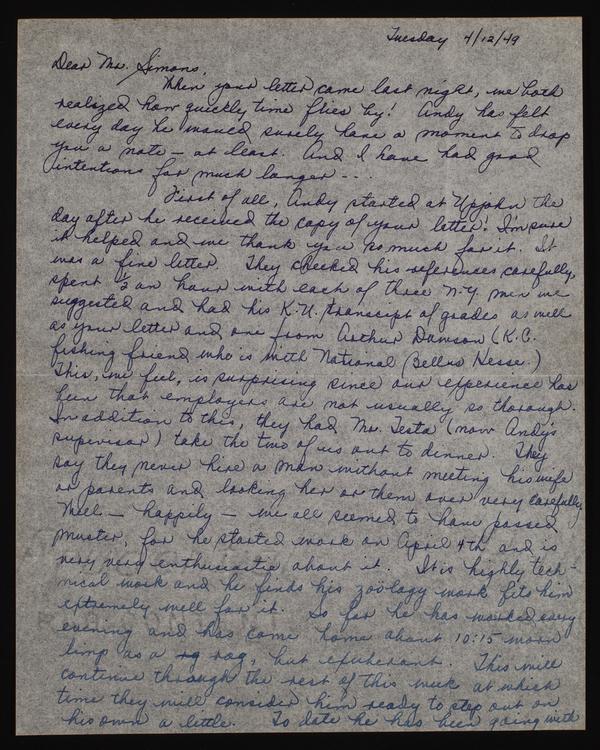 Tuesday 4/12/49
Dear Mr. Simons,
When your letter came last night, we both
realized how quickly time flies by! Andy has felt
every day he would surely have a moment to drop
you a note — at least. And I have had good
intentions for much longer - - -
First of all, Andy started at Upjohn the
day after he received the copy of your letter! I'm sure
it helped and we thank you so much for it. It
was a fine letter. They checked his references carefully,
spent ½ an hour with each of three N.Y. men we
suggested and had his K.U. transcript of grades as well
as your letter and one from Arthur Dawson (K.C.
fishing friend who is with National Bellas Hesse.)
This, we feel, is surprising since our experience has
been that employers are not usually so thorough.
In addition to this, they had Mr. Testa (now Andy's
supervisor) take the two of us out to dinner. They
say they never hire a man without meeting his wife
or parents and looking her or them over very carefully.
Well — happily — we all seemed to have passed
muster, for he started work on April 4th and is
very very enthusiastic about it. It is highly tech-
nical work and he finds his zoölogy work fits him
extremely well for it. So far he has worked every
evening and has come home about 10:15 worn
limp as a rag, but exuberant. This will
continue through the rest of this week at which
time they will consider him ready to step out on
his own a little. To date he has been going with